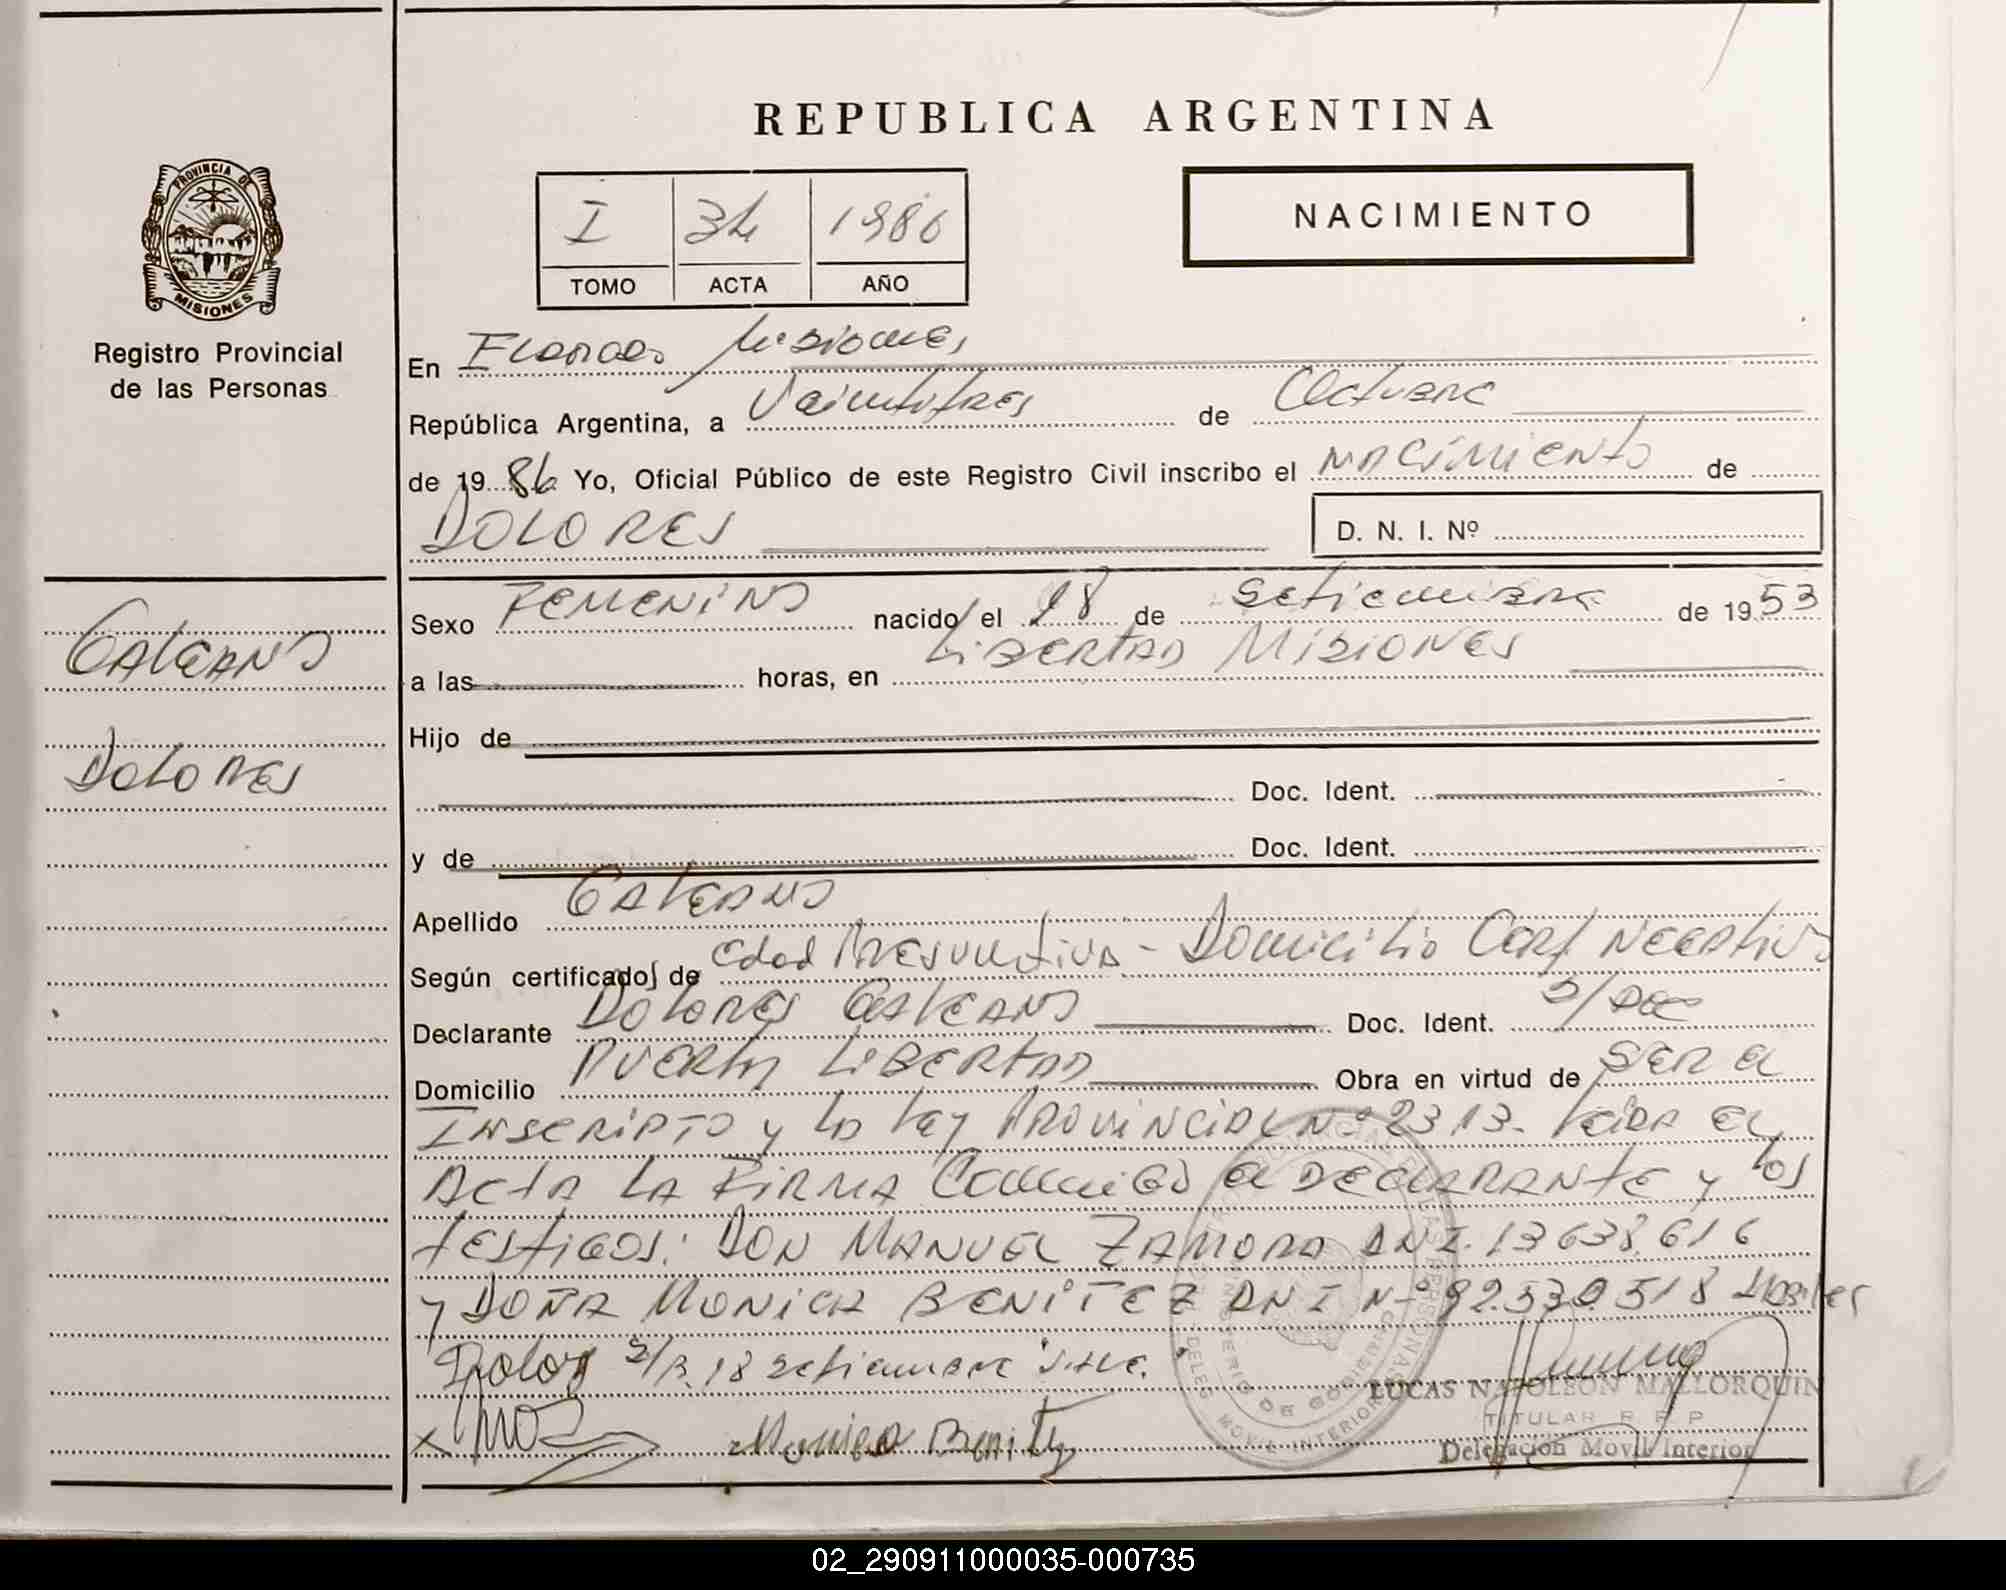 REPUBLICA ARGENTINA
PROVINCIA DE
MISIONES
Registro Provincial
de las Personas
I 34 1986
TOMO ACTA AÑO
NACIMIENTO
En Misiones
República Argentina, a Veintitres de Octubre
de 1986 Yo, Oficial Público de este Registro Civil inscribo el nacimiento de
DOLORES
D. N. I. Nº
Sexo FEMENINO nacido el 18 de Setiembre de 1953
a las horas, en LIBERTAD MISIONES
Hijo de
Doc. Ident.
y de Doc. Ident.
Apellido GALEANO
Según certificado de edad Presuntiva - Domicilio Cert Negativo
Declarante DOLORES GALEANO Doc. Ident. S/Doc
Domicilio PUERTO LIBERTAD Obra en virtud de SER el
INSCRIPTO y la ley PROVINCIAL Nº 2313. Leida el
Acta LA FIRMA Conmigo el DECLARANTE y los
testigos: DON MANUEL ZAMORA DNI. 13638.616
y DOÑA MONICA BENITEZ DNI Nº 92.530.518
S/R. 18 setiembre Vale.
Monica Benitez
LUCAS NAPOLEON MALLORQUIN
TITULAR R. P. P.
Delegación Movil Interior
GALEANO
DOLORES
02_290911000035-000735